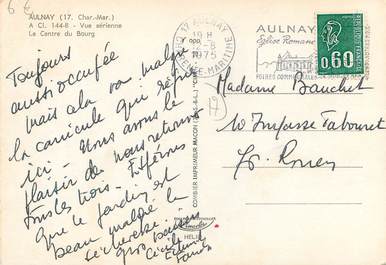 6€
AULNAY (17. Char.-Mar.)
A Cl. 144-8 - Vue aérienne
Le Centre du Bourg
Toujours
aussi occupée
mais à la va malgré
la canicule qui règne
ici. Nous avons le
plaisir de nous retrouver
tous les trois. Espérons
que le jardin est
beau malgré la
sécheresse.
Gros baisers
Cécile
COMBIER IMPRIMEUR MACON
17 AULNAY
19 H
8
1975
CHARENTE-MARITIME
AULNAY
Eglise Romane
FOIRES COMMERCIALES
0,60
Madame Bauchet
10 Impasse Tabouret
HELIO